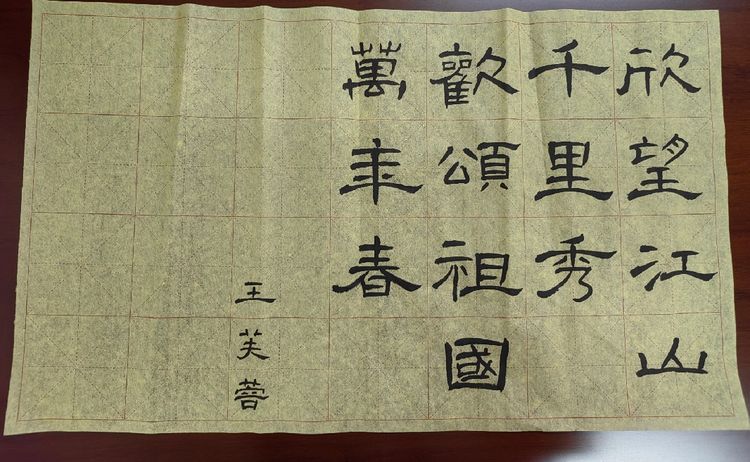 欣望江山
千里秀
歡頌祖國
萬年春
王芙蓉